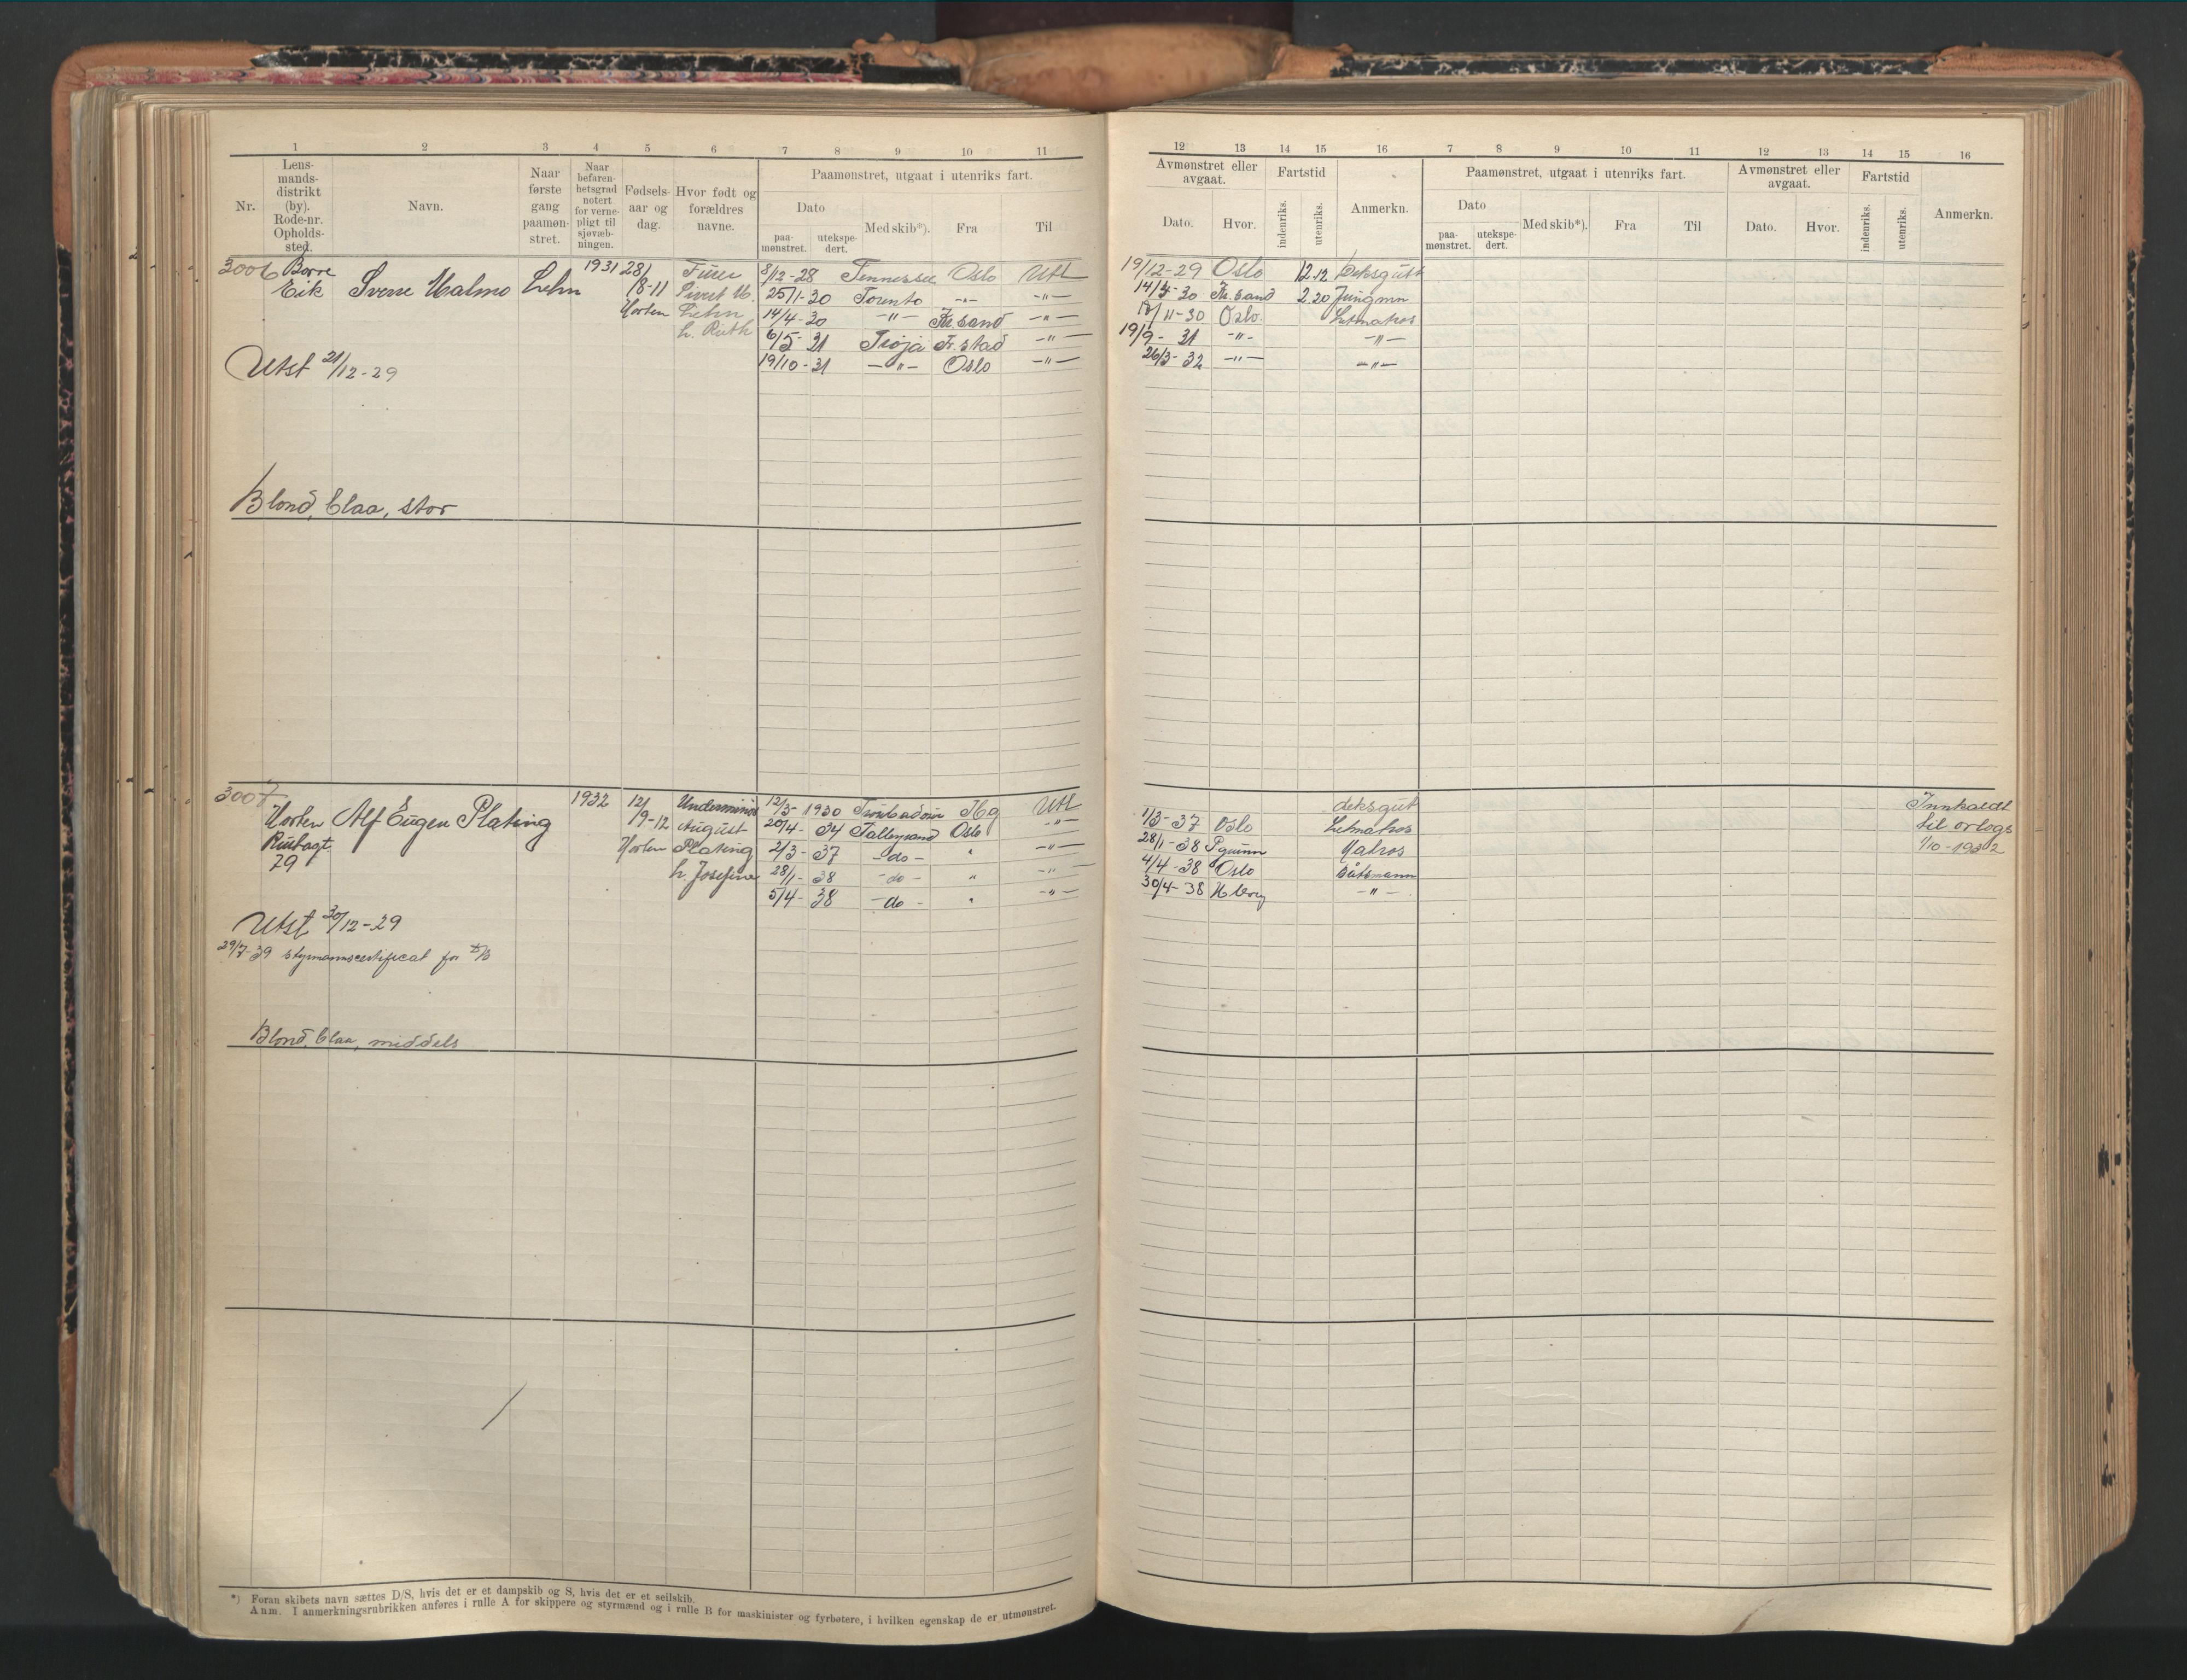 1 2 3 4 5 6 7 8 9 10 11
Nr. Lens-mands-distrikt (by). Rode-nr. Opholds-sted. Navn. Naar første gang paamøn-stret. Naar befaren-hetsgrad notert for verne-pligt til sjøvæb-ningen. Fødsels-aar og dag. Hvor født og forældres navne. Paamønstret, utgaat i utenriks fart.
Dato Med skib*). Fra Til
paa-mønstret. utekspe-dert.
3006 Borre Sverre Malmo Lehn 1931 28/ 8/12-28 Tennessee Oslo Utl
Eik 8-11 Sivert M. 25/1-30 Toronto -"- -"-
Horten Lehn 14/4-30 -"- Kr.sand -"-
h. Ruth 6/5-31 Troja Fr.stad -"-
Utst 21/12-29 19/10-31 -"- Oslo -"-
Blond, blaa, stor
3007 1932 12/ Underminør 12/3-1930 Hbg Utl
Horten Alf Eugen Plating 9-12 August 20/4-34 Talleyrand Oslo -"-
Horten Plating 2/3-37 -do- " -"-
29 h. Josefine 28/1-38 -do- " -"-
5/4-38 -do- " -"-
Utst 30/12-29
29/7-39 styrmannscertifikat for
Blond, blaa, middels
*) Foran skibets navn sættes D/S, hvis det er et dampskib og S, hvis det er et seilskib.
Anm. I anmerkningsrubrikken anføres i rulle A for skippere og styrmænd og i rulle B for maskinister og fyrbøtere, i hvilken egenskap de er utmønstret.
12 13 14 15 16 7 8 9 10 11 12 13 14 15 16
Avmønstret eller avgaat. Fartstid Anmerkn. Paamønstret, utgaat i utenriks fart. Avmønstret eller avgaat. Fartstid Anmerkn.
Dato. Hvor. indenriks. utenriks. Dato Med skib*). Fra Til Dato. Hvor. indenriks. utenriks.
paa-mønstret. utekspe-dert.
19/12-29 Oslo 12.12 deksgutt
14/4-30 Kr.sand 2.20 Jungmn
11-30 Oslo Letmatros
19/9-31 -"- -"-
26/3-32 -"- -"-
deksgut Innkaldt
1/3-37 Oslo Letmatros til orlogs
28/1-38 Matros 1/10-1932
4/4-38 Oslo båtsmann
30/4-38 -"-